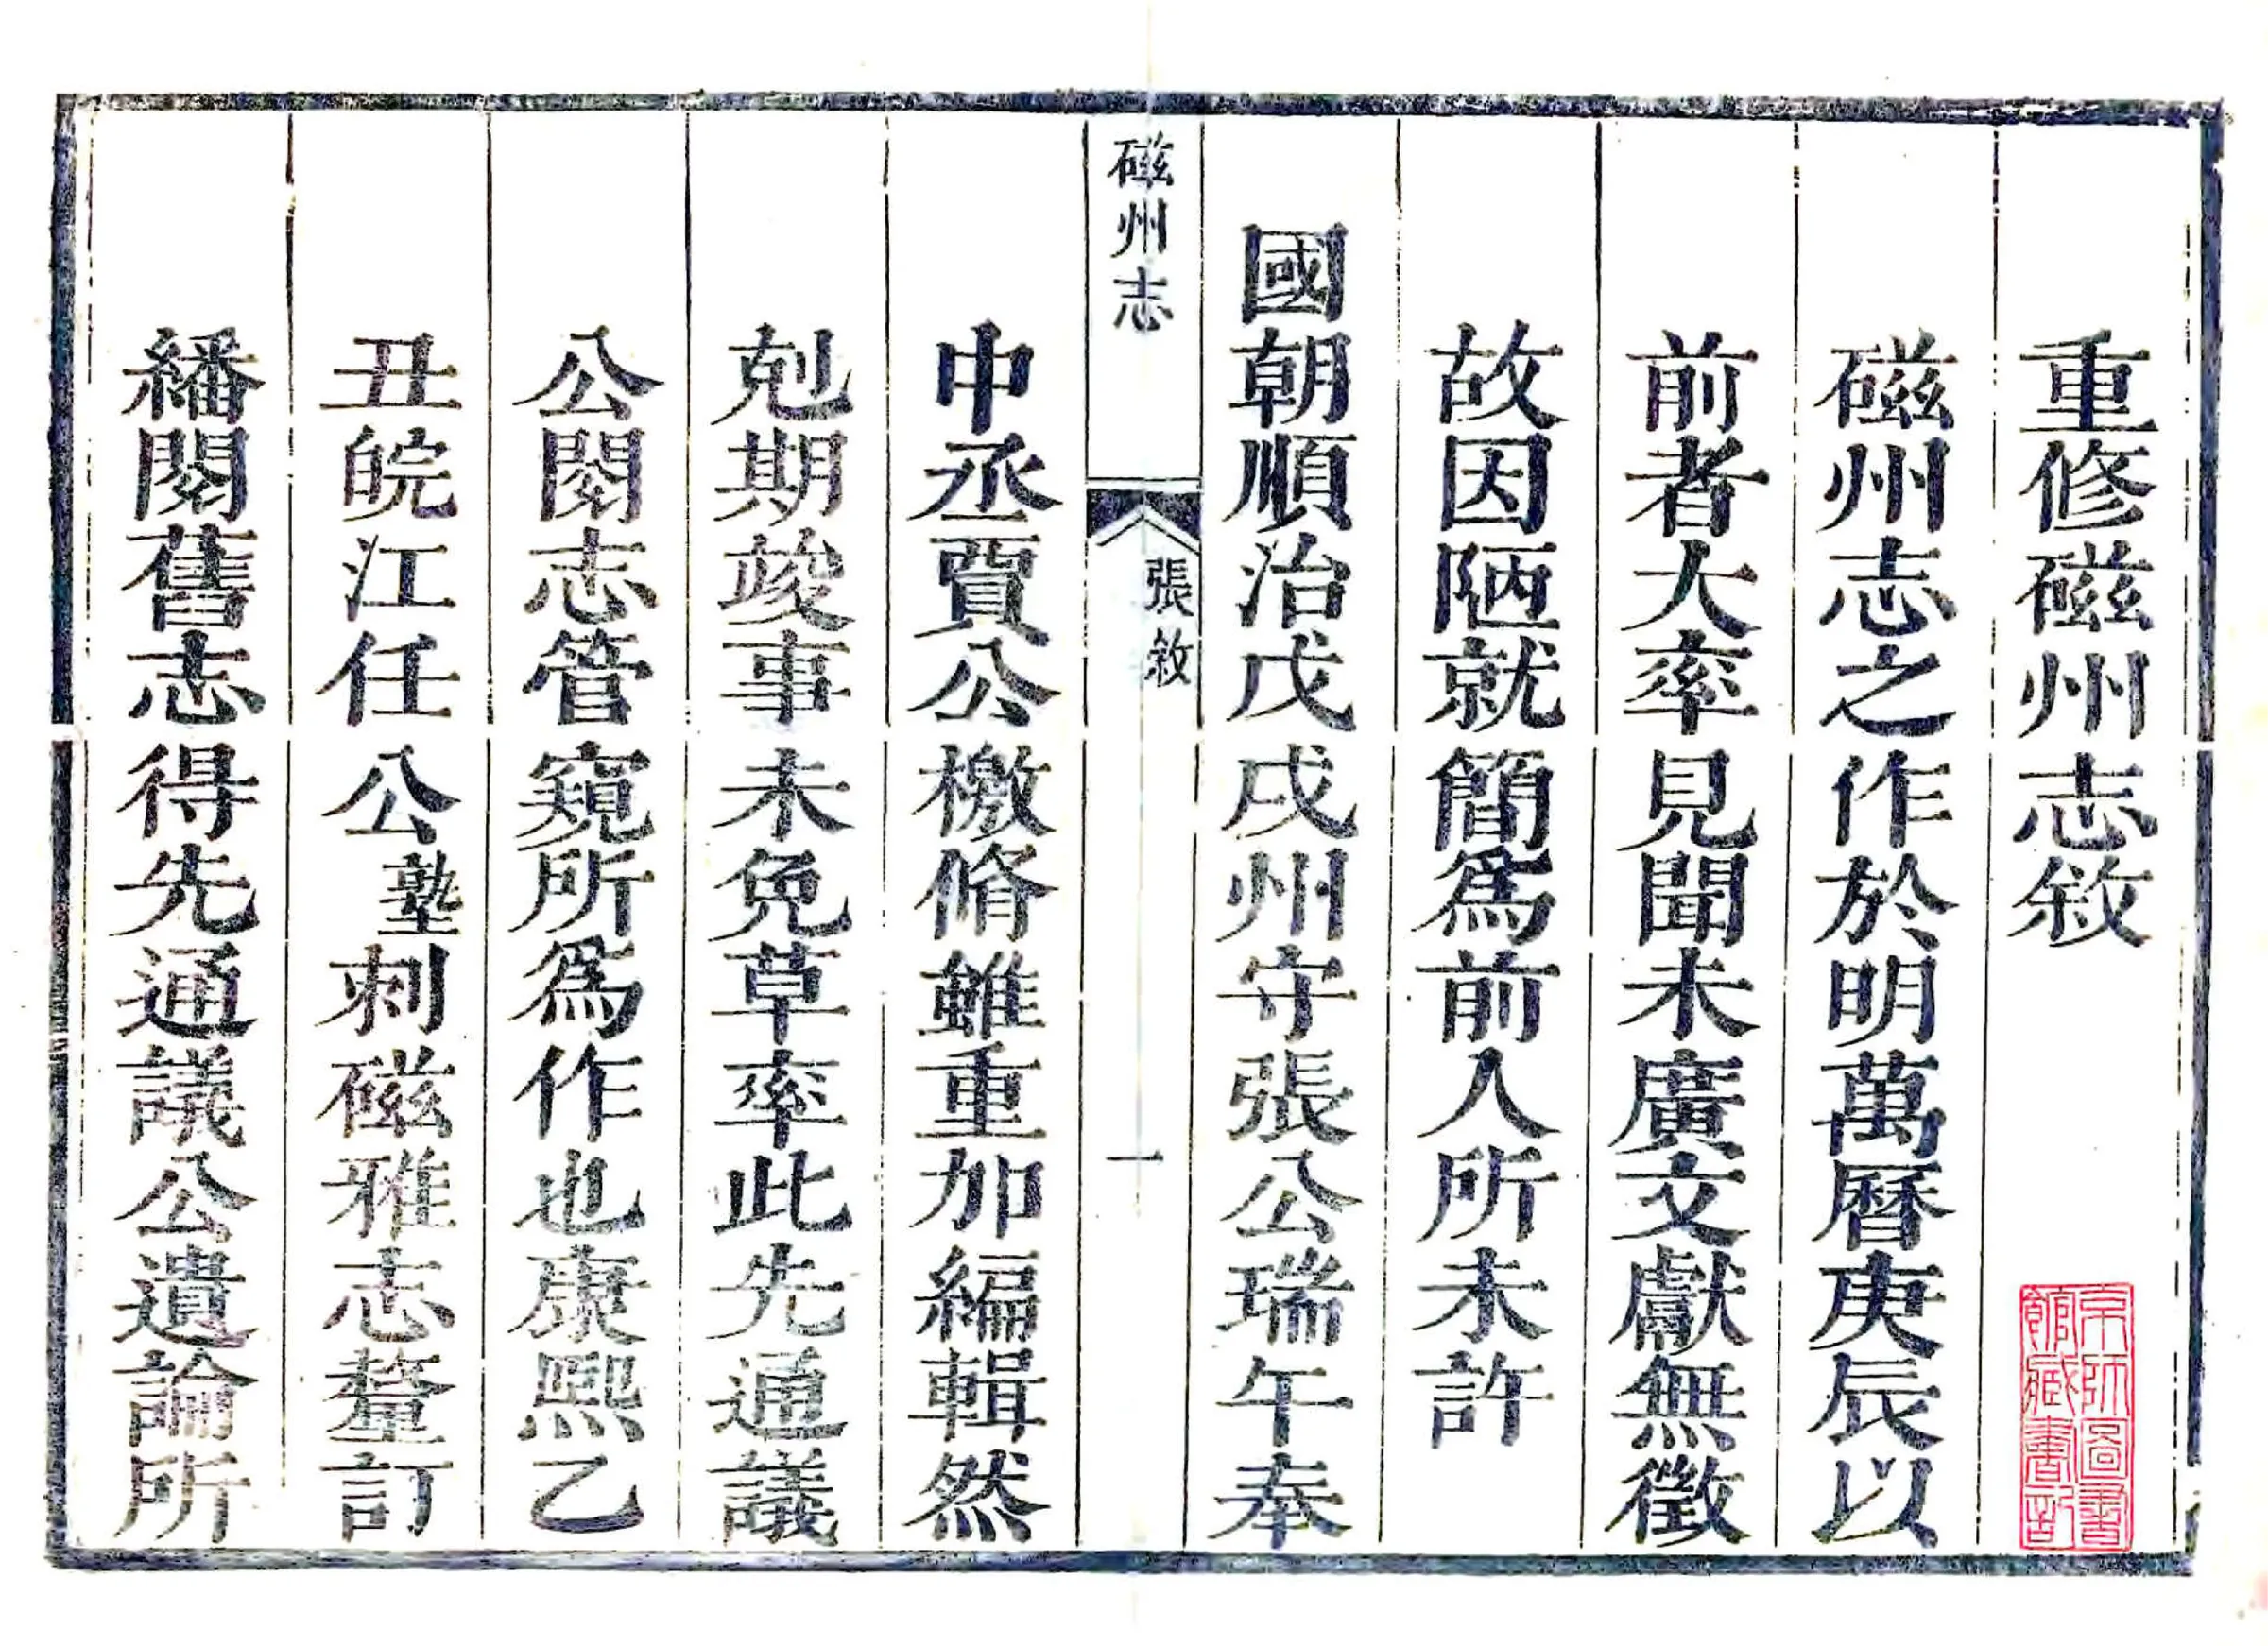 重修磁州志敘
磁州志之作於明萬曆庚辰以
前者大率見聞未廣文獻無徵
故因陋就簡爲前人所未許
國朝順治戊戌州守張公瑞午奉
磁州志
張敘
一
中丞賈公檄脩雖重加編輯然
剋期竣事未免草率此先通議
公閱志管窺所爲作也康熙乙
丑皖江任公塾刺磁雅志釐訂
繙閱舊志得先通議公遺論所
京師圖書
館藏書記